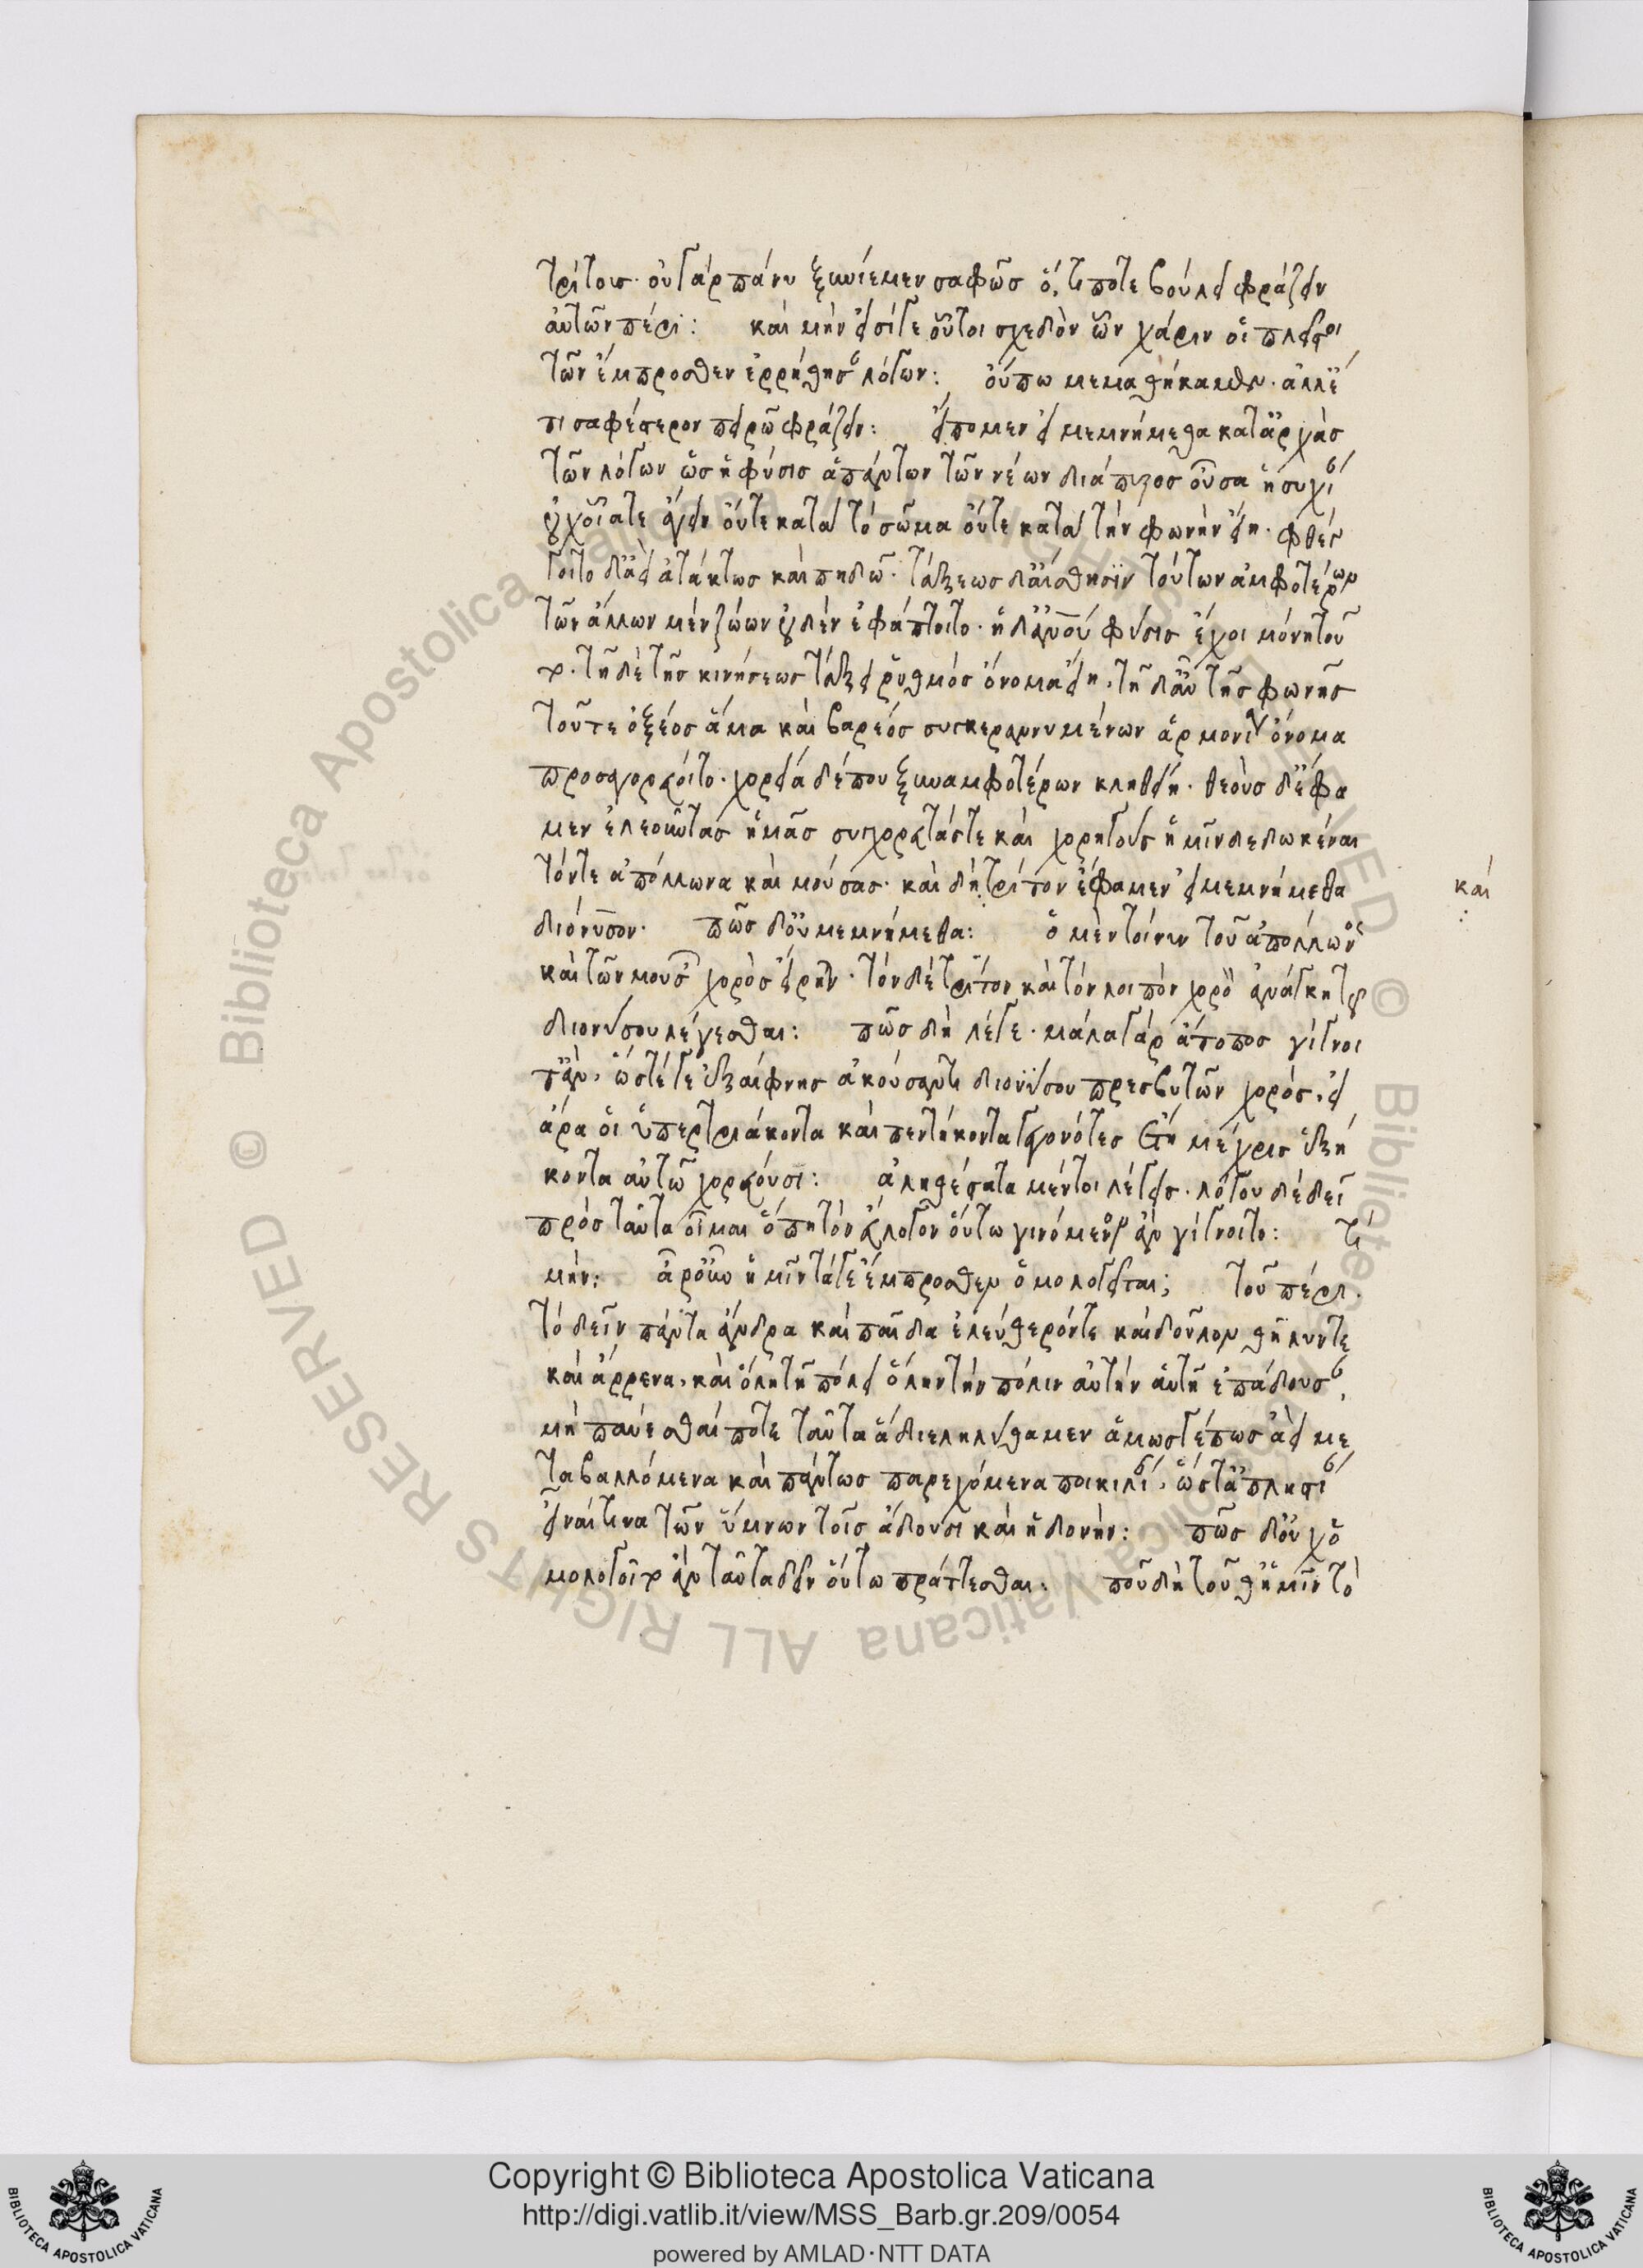 τρίτοισ· οὐ γὰρ πάνυ ξυνίεμεν σαφῶσ ὅ, τι ποτὲ βούλει φράζειν
αὐτῶν πέρι: καὶ μὴν εἰσί γε οὗτοι σχεδὸν ὧν χάριν οἱ πλεῖστοι
τῶν ἔμπροσθεν ἐρρήθησαν λόγων: οὔπω μεμαθήκαμεν· ἀλλ' ἔ
τι σαφέστερον πειρῶ φράζειν: εἴπομεν εἰ μεμνήμεθα κατ' ἀρχὰσ
τῶν λόγων ὡσ ἡ φύσισ ἁπάντων τῶν νέων διάπυροσ οὖσα ἡσυχίαν
οὐχ οἵα τε ἄγειν οὔτε κατὰ τὸ σῶμα οὔτε κατὰ τὴν φωνὴν εἴη· φθέγ
γοιτο δ' ἀεὶ ἀτάκτωσ καὶ πηδῶ· τάξεωσ δ' αἴσθησιν τούτων ἀμφοτέρων
τῶν ἄλλων μὲν ζώων οὐδὲν ἐφάπτοιτο· ἡ δ' ἀνου φύσισ ἔχοι μόνη τοῦ
το· τῇ δὲ τῆσ κινήσεωσ τάξει ῥυθμὸσ ὄνομα εἴη· τῇ δ' αὖ τῆσ φωνῆσ
τοῦ τε ὀξέοσ ἅμα καὶ βαρέοσ συγκεραννυμένων ἁρμονία ὄνομα
προσαγορεύοιτο· χορεία δέ που ξυναμφοτέρων κληθείη· θεοὺσ δ' ἔφα
μεν ἐλεοῦντασ ἡμᾶσ συγχορευτάσ τε καὶ χορηγοὺσ ἡμῖν δεδωκέναι
τόν τε ἀπόλλωνα καὶ μούσασ· καὶ δὴ τρίτον ἔφαμεν εἰ μεμνήμεθα
καὶ
διόνυσον· πῶσ δ' οὐ μεμνήμεθα: ὁ μὲν τοίνυν τοῦ ἀπόλλωνοσ
καὶ τῶν μουσῶν χορὸσ εἴρην· τὸν δὲ τρίτον καὶ τὸν λοιπὸν χορὸν ἀνάγκη τοῦ
διονύσου λέγεσθαι: πῶσ δὴ λέγε· μάλα γὰρ ἄτοποσ γίγνοι
τ' ἄν, ὥσ γέ γε ἐξαίφνησ ἀκούσαντι διονύσου πρεσβυτῶν χορόσ, εἰ
ἄρα οἱ ὑπὲρ τριάκοντα καὶ πεντήκοντα γεγονότεσ ἔτη μέχρισ ἑξή
κοντα αὐτῷ χορεύουσι: ἀληθέστατα μέντοι λέγεισ· λόγου δὲ δεῖ
πρὸσ ταῦτα οἶμαι ὅπη τὸν εὔλογον οὕτω γινόμενον ἂν γίγνοιτο: τί
μήν: ἆρ' οὖν ἡμῖν τά γε ἔμπροσθεν ὁμολογεῖται; τοῦ πέρι·
τὸ δεῖν πάντα ἄνδρα καὶ παῖδα ἐλεύθερόν τε καὶ δοῦλον θῆλύν τε
καὶ ἄρρενα, καὶ ὅλῃ τῇ πόλει ὅλην τὴν πόλιν αὐτὴν αὑτῇ ἐπάδουσαν,
μὴ παύεσθαί ποτε ταῦτα ἃ διεληλύθαμεν ἁμωσγέπωσ ἀεὶ με
ταβαλλόμενα καὶ πάντωσ παρεχόμενα ποικιλίαν, ὥστ' ἀπληστίαν
εἶναί τινα τῶν ὕμνων τοῖσ ᾄδουσι καὶ ἡδονήν: πῶσ δ' οὐχ ὁ
μολογοῖτο ἂν ταῦτα δεῖν οὕτω πράττεσθαι: ποῦ δὴ τοῦθ' ἡμῖν τὸ
Copyright © Biblioteca Apostolica Vaticana
http://digi.vatlib.it/view/MSS_Barb.gr.209/0054
powered by AMLAD·NTT DATA